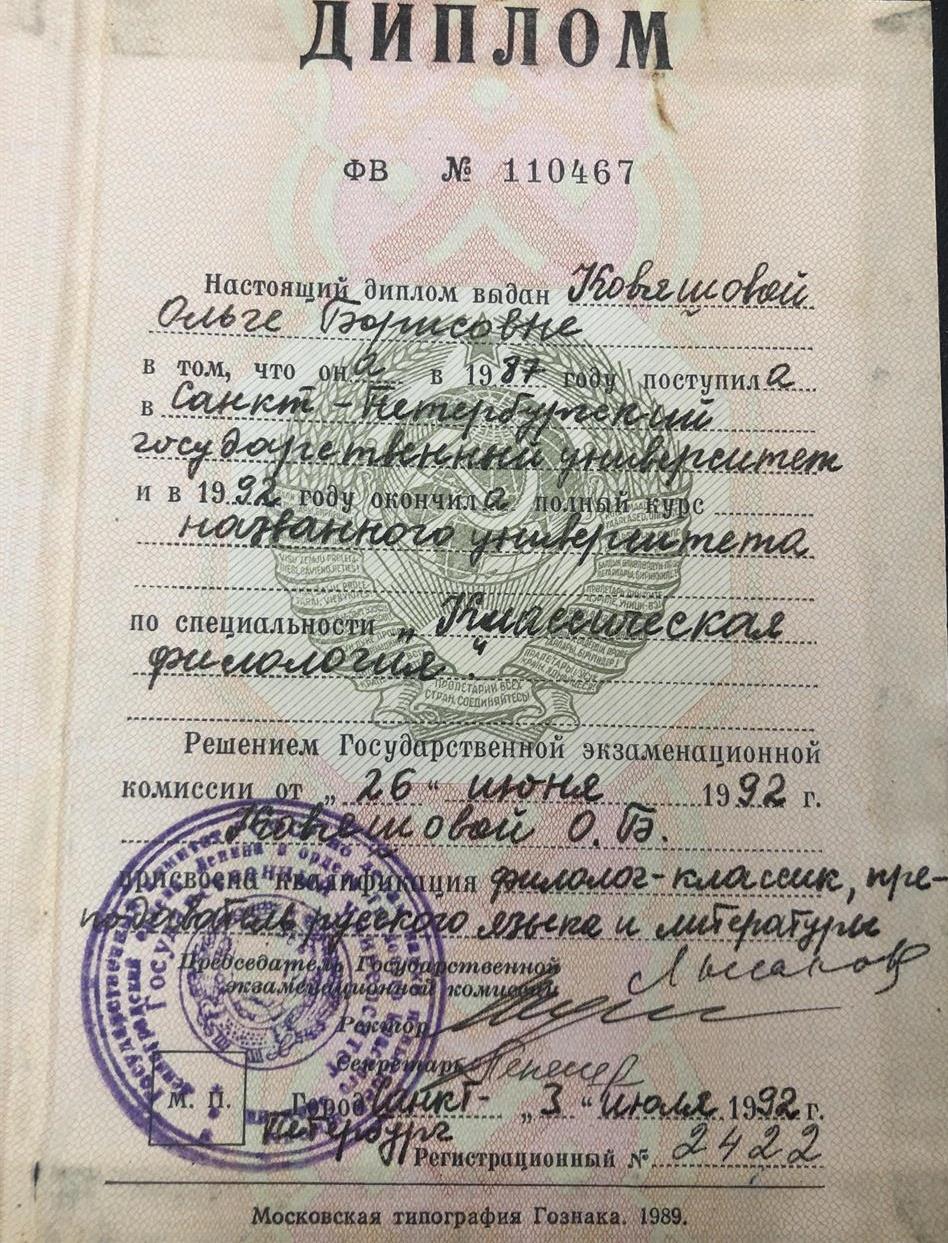 ДИПЛОМ
ФВ № 110467
Настоящий диплом выдан Ковяшовой
Ольге Борисовне
в том, что она в 1987 году поступила
в Санкт-Петербургский
государственный университет
и в 1992 году окончила полный курс
названного университета
по специальности „Классическая
филология".
ПРОЛЕТАРИИ ВСЕХ
СТРАН, СОЕДИНЯЙТЕСЬ!
Решением Государственной экзаменационной
комиссии от „26" июня 1992 г.
Ковяшовой О.Б.
присвоена квалификация филолог-классик, пре-
подаватель русского языка и литературы
Председатель Государственной
экзаменационной комиссии
Ректор
Секретарь
М. П. Город Санкт- „3" июля 1992 г.
Петербург
Регистрационный № 2422
Московская типография Гознака. 1989.